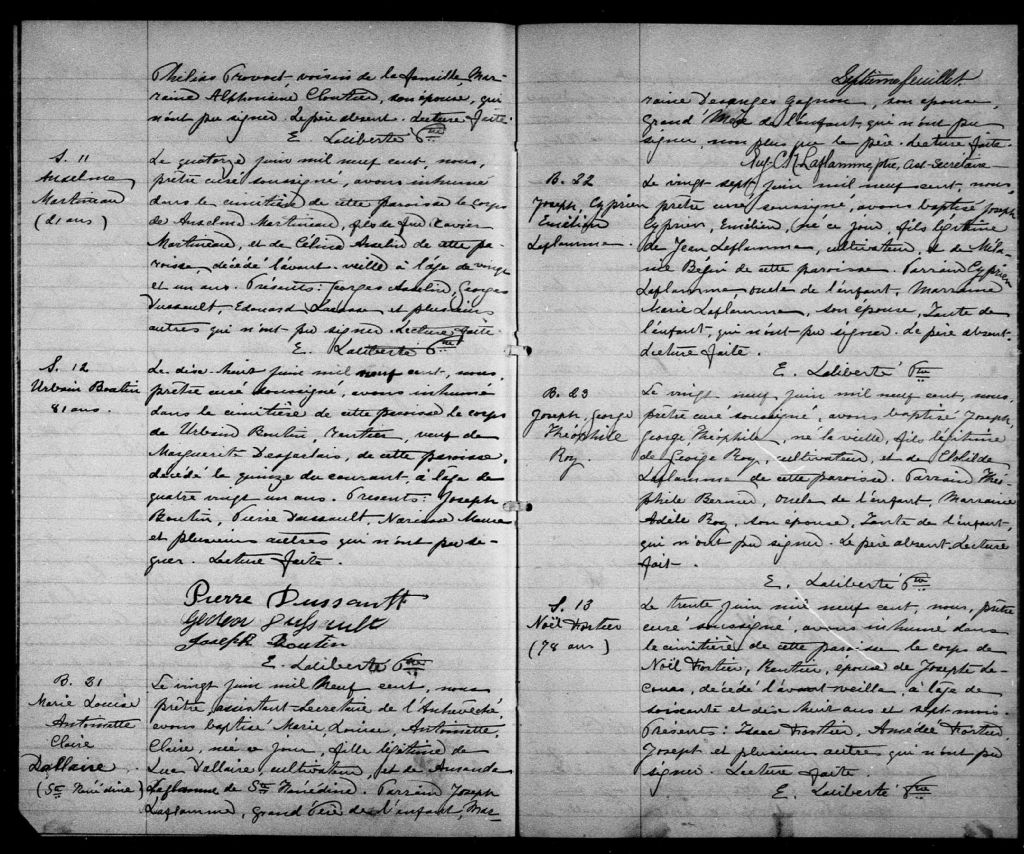 Philias Provost voisin de la famille. Mar-
raine Alphonsine Cloutier, son épouse, qui
n'ont pu signer. Le père absent. Lecture faite.
E. Laliberté Ptre
S. 11
Anselme
Martineau
(21 ans)
Le quatorze juin mil neuf cent, nous,
prêtre curé soussigné, avons inhumé
dans le cimetière de cette paroisse le corps
de Anselme Martineau, fils de feu Xavier
Martineau, et de Célina Asselin de cette pa-
roisse, décédé l'avant-veille à l'âge de vingt
et un ans. Présents: Georges Asselin, Georges
Dussault, Edouard et plusieurs
autres qui n'ont pu signer. Lecture faite.
E. Laliberté Ptre
S. 12
Urbain Boutin
81 ans.
Le dix-huit juin mil neuf cent, nous,
prêtre curé soussigné, avons inhumé
dans le cimetière de cette paroisse le corps
de Urbain Boutin, rentier, veuf de
Marguerite Desjarlais, de cette paroisse,
décédé le quinze du courant, à l'âge de
quatre vingt un ans. Présents: Joseph
Boutin, Pierre Dussault, Narcisse
et plusieurs autres qui n'ont pu si-
gner. Lecture faite.
Pierre Dussault
Gédéon Dussault
Joseph Boutin
E. Laliberté Ptre
B. 21
Marie Louise
Antoinette
Claire
Dallaire
(Ste Hénédine)
Le vingt juin mil neuf cent, nous
prêtre, assistant-secrétaire de l'Archevêché,
avons baptisé Marie Louise, Antoinette,
Claire, née ce jour, fille légitime de
Luc Dallaire, cultivateur, et de Amanda
Laflamme de Ste Hénédine. Parrain Joseph
Laflamme, grand Père de l'enfant, Mar-
Septième feuillet.
raine Desanges Gagnon, son épouse,
Grand'Mère de l'enfant, qui n'ont pu
signer, non plus que le père. Lecture faite.
Laflamme, ptre, ass-Secrétaire
B. 22
Joseph, Cyprien
Emélien
Laflamme.
Le vingt sept juin mil neuf cent, nous,
prêtre curé soussigné, avons baptisé Joseph
Cyprien, Emélien, né ce jour, fils légitime
de Jean Laflamme, cultivateur, et de Méla-
nie Bégin de cette paroisse. Parrain Cyprien
Laflamme oncle de l'enfant, Marraine
Marie Laflamme, son épouse, Tante de
l'enfant, qui n'ont pu signer. Le père absent.
Lecture faite.
E. Laliberté Ptre
B. 23
Joseph, George
Théophile
Roy.
Le vingt neuf juin mil neuf cent, nous,
prêtre curé soussigné, avons baptisé Joseph,
George Théophile, né la veille, fils légitime
de George Roy, cultivateur, et de Clotilde
Laflamme de cette paroisse. Parrain Théo-
phile Bernier, oncle de l'enfant, Marraine
Adèle Roy, son épouse, Tante de l'enfant,
qui n'ont pu signer. Le père absent. Lecture
fait.
E. Laliberté Ptre
S. 13
Noël Fortier
(78 ans)
Le trente juin mil neuf cent, nous, prêtre
curé soussigné, avons inhumé dans
le cimetière de cette paroisse le corps de
Noël Fortier, Rentier, épouse de Josepte La-
coues, décédé l'avant-veille, à l'âge de
soixante et dix huit ans et sept mois.
Présents: Isaac Fortier, Amédée Fortier,
Joseph et plusieurs autre qui n'ont pu
signer. Lecture faite.
E. Laliberté Ptre